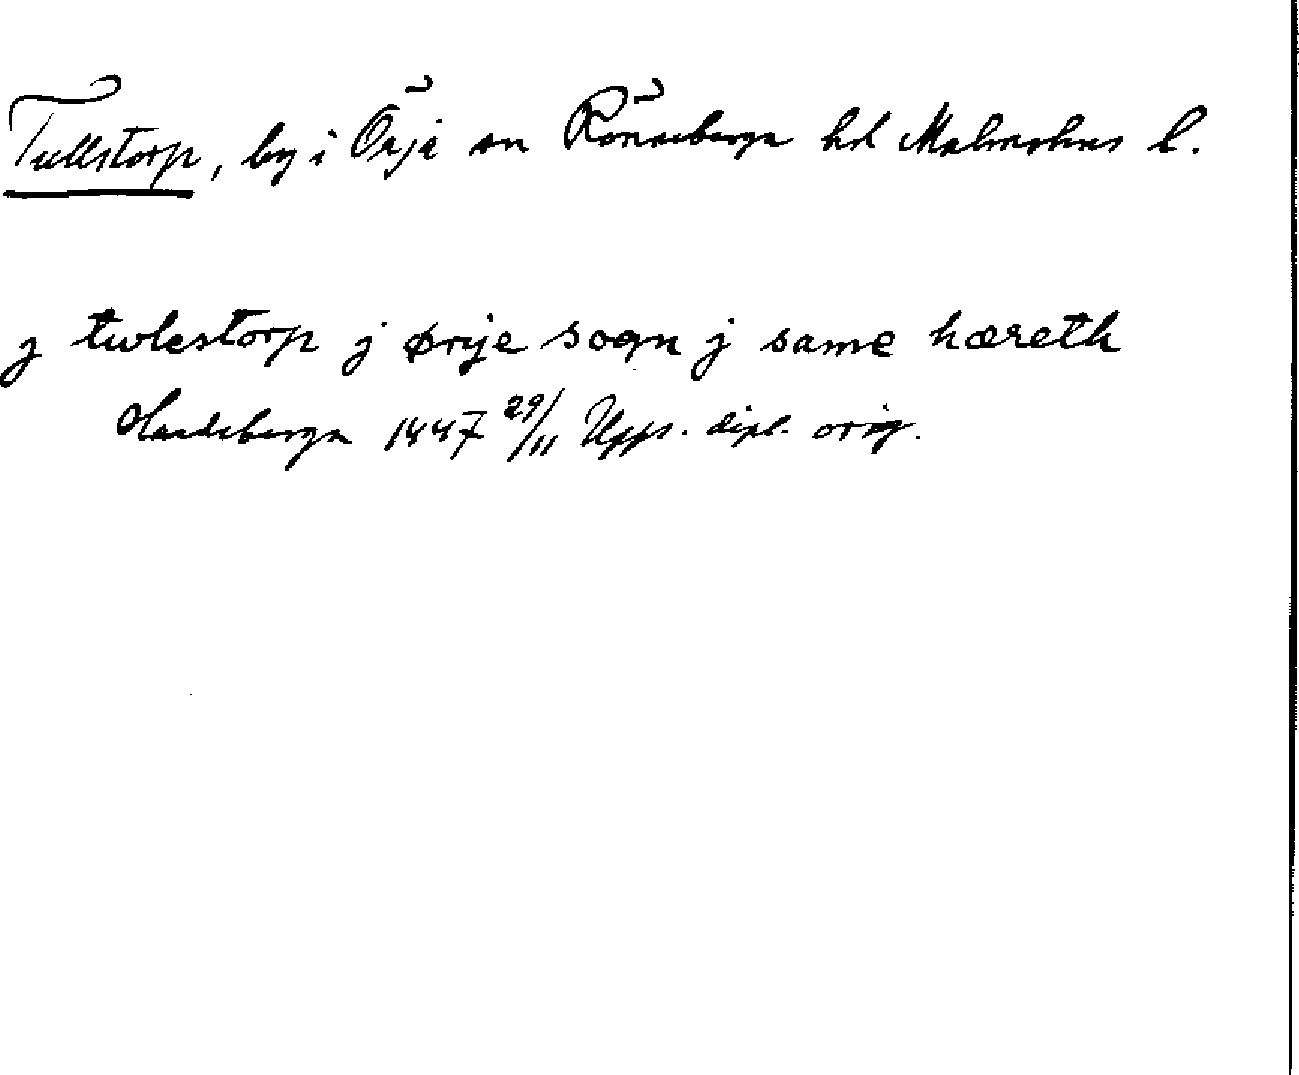 Tullstorp, by i Örja sn Rönnebergs hd Malmöhus l.
j twlestorp j ørije sogn j same hæreth
Landsberga 1447 29/11 Upps. dipl. orig.